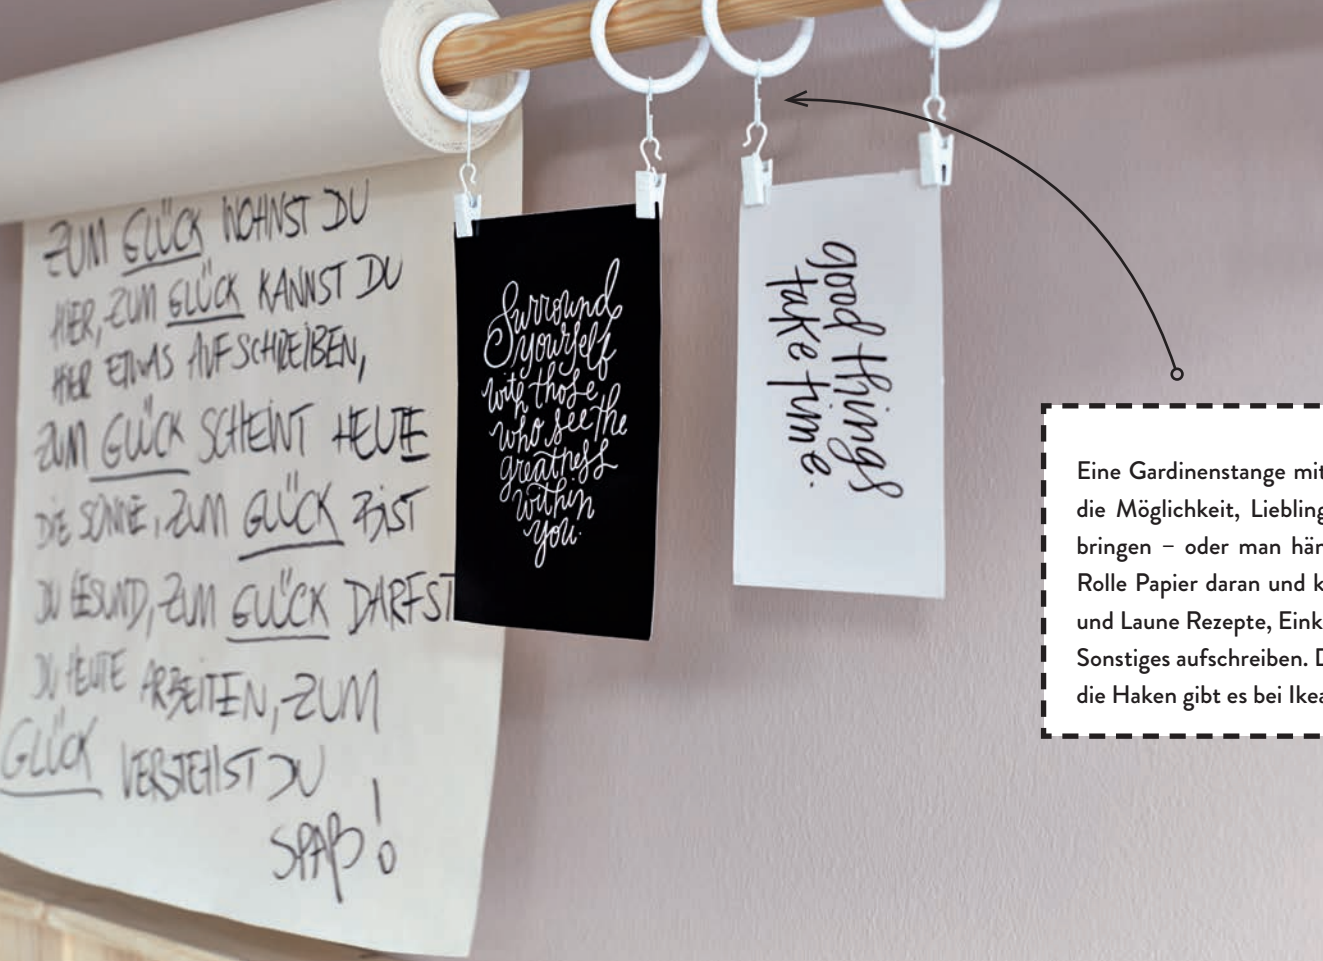 ZUM GLÜCK WOHNST DU
HIER, ZUM GLÜCK KANNST DU
HIER ETWAS AUFSCHREIBEN,
ZUM GLÜCK SCHEINT HEUTE
DIE SONNE, ZUM GLÜCK BIST
DU GESUND, ZUM GLÜCK DARFST
DU HEUTE ARBEITEN, ZUM
GLÜCK VERSTEHST DU
SPAß!
Surround
yourself
with those
who see the
greatness
within
you.
good things
take time.
Eine Gardinenstange mit
die Möglichkeit, Liebling
bringen – oder man hän
Rolle Papier daran und k
und Laune Rezepte, Eink
Sonstiges aufschreiben. D
die Haken gibt es bei Ikea